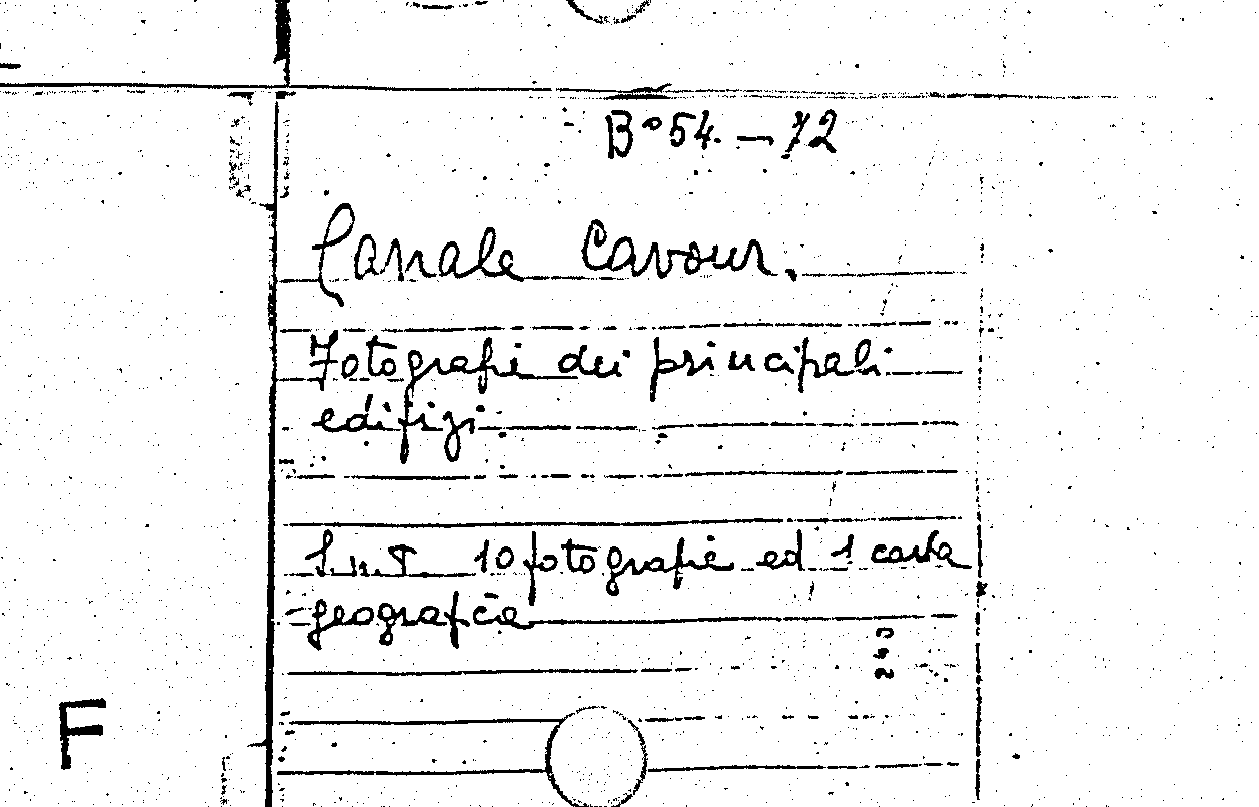 B° 54. — 72
Canale Cavour.
Fotografie dei principali
edifizi.
S.n.T. 10 fotografie ed 1 carta
geografica
243
F